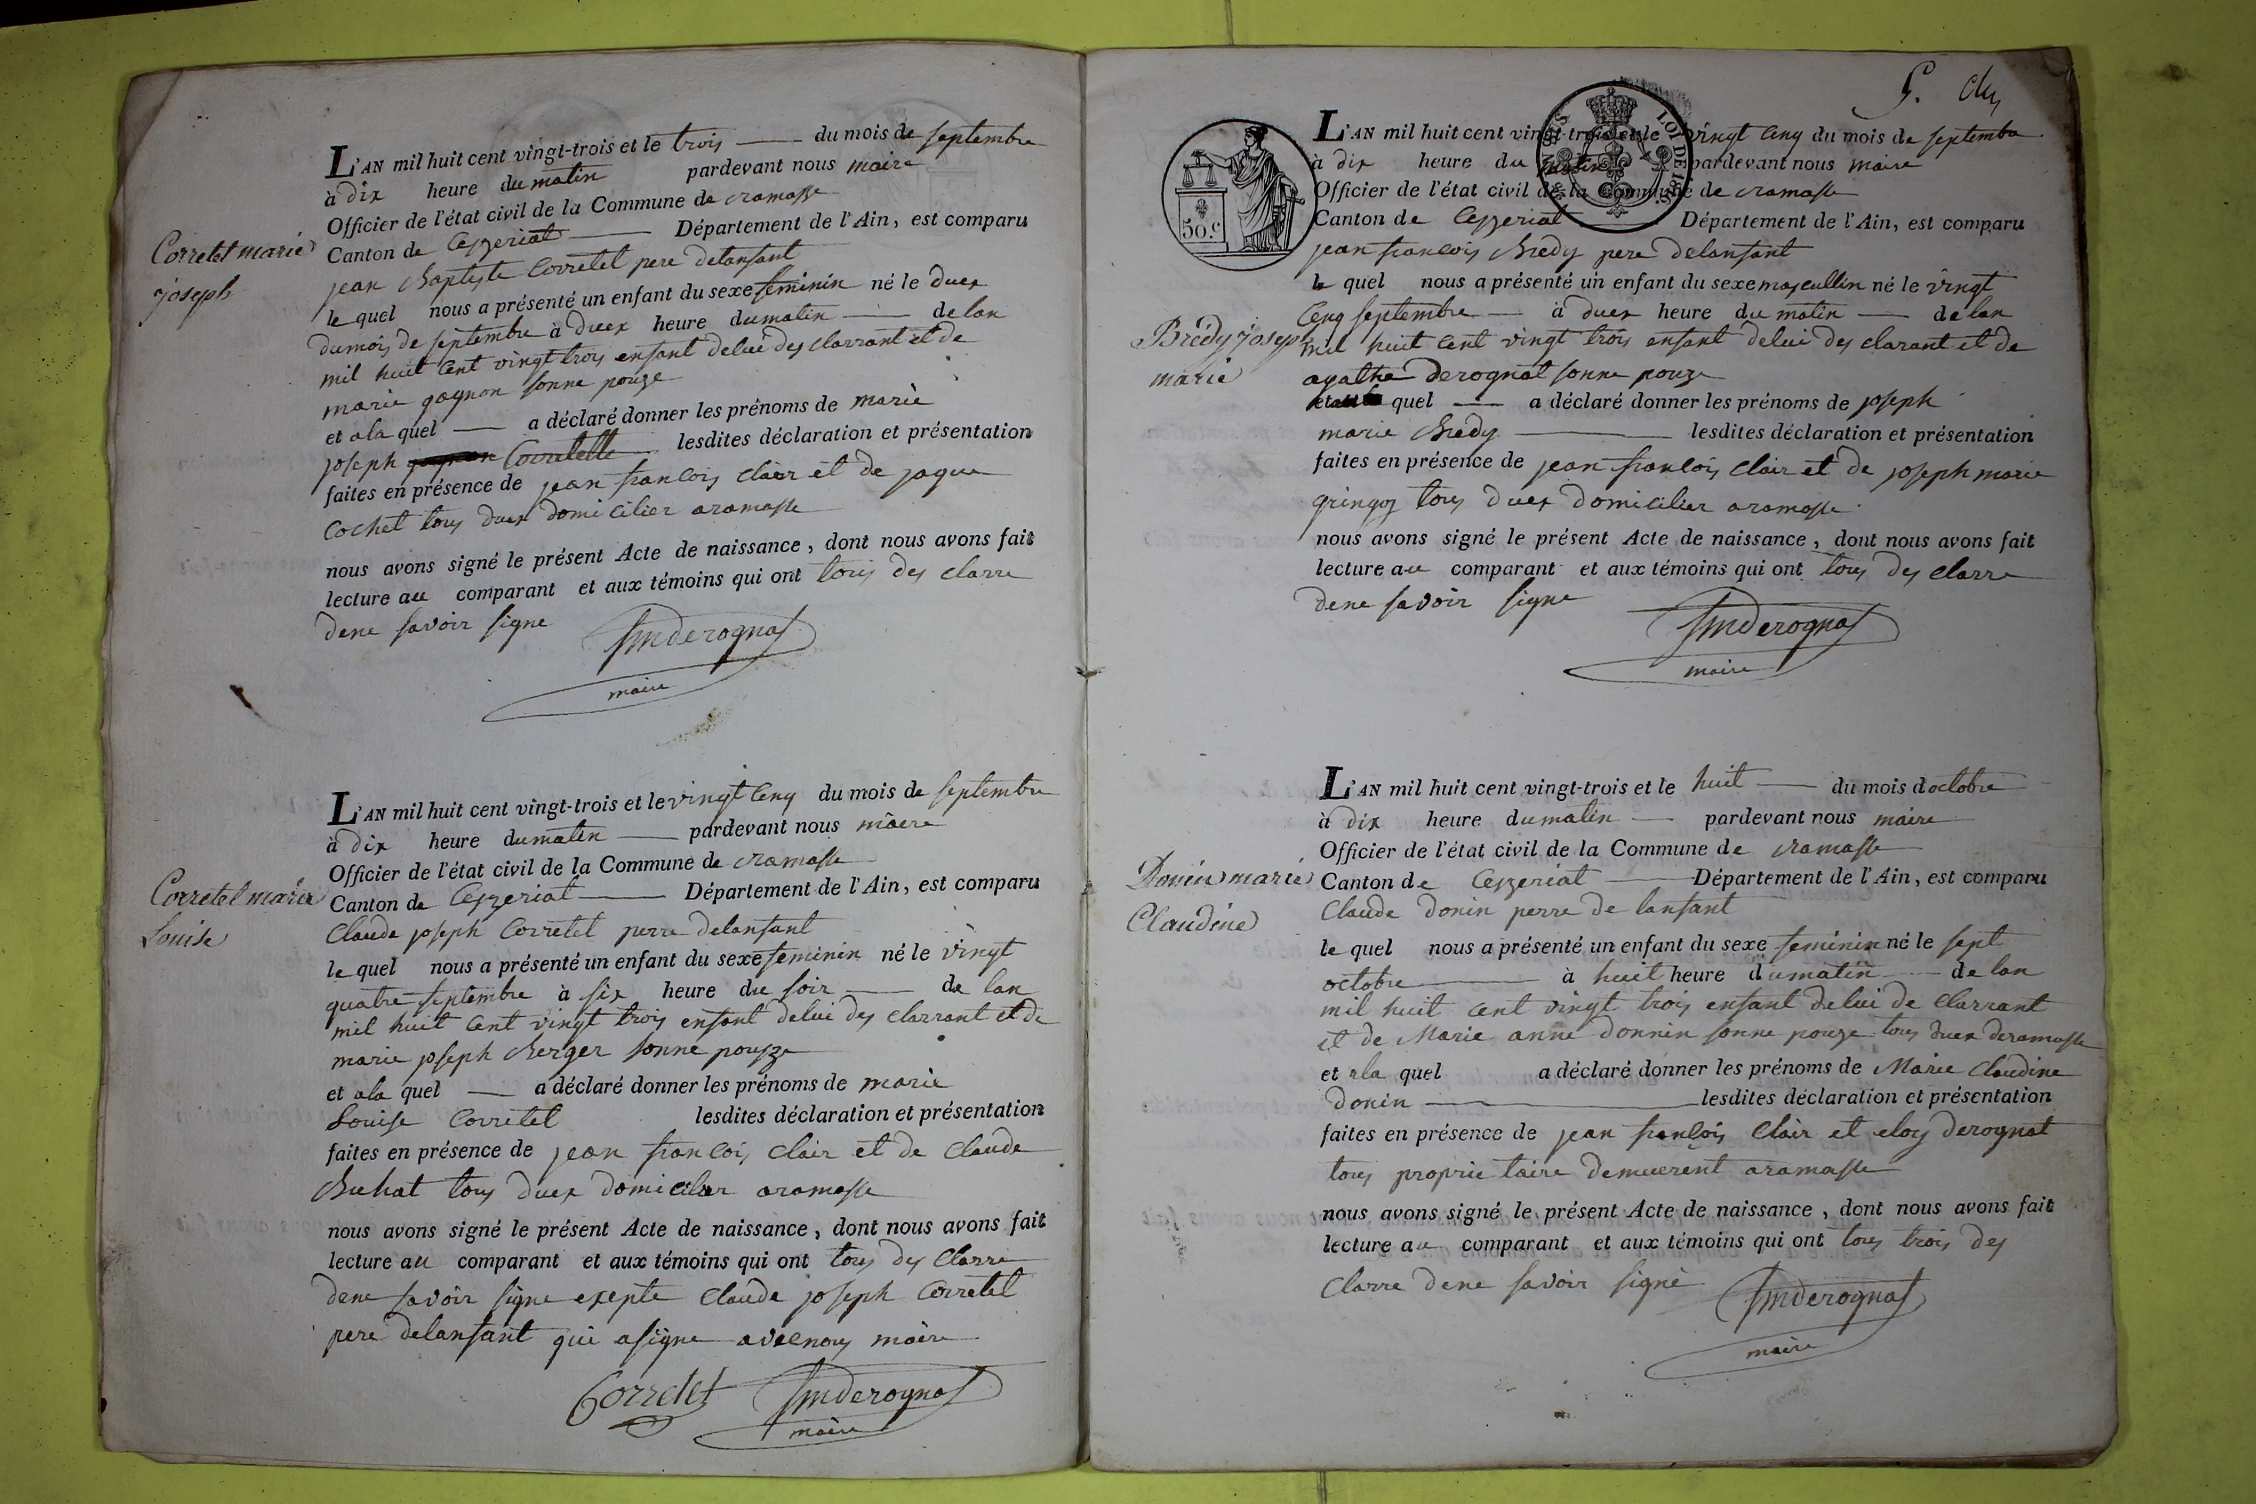 L'AN mil huit cent vingt-trois et le trois du mois de septembre
à dix heure du matin pardevant nous maire
Officier de l'état civil de la Commune de cramasse
Canton de Ceyzeriat Département de l'Ain, est comparu
jean Baptiste Corretel pere delansant
le quel nous a présenté un enfant du sexe feminin né le duex
dumois de septembre à duex heure du matin de lan
mil huit cent vingt trois enfant delui des clarrant et de
marie gagnon sonne pouze
et a la quel a déclaré donner les prénoms de marie
joseph Corretelle lesdites déclaration et présentation
faites en présence de jean francois clair et de jaque
cochet tous duex domicilier aramasse
nous avons signé le présent Acte de naissance, dont nous avons fait
lecture au comparant et aux témoins qui ont tous des clarre
dene savoir signe
derognat
maire
Corretet marie
joseph
L'AN mil huit cent vingt-trois et le vingt cenq du mois de septembre
à dix heure du matin pardevant nous maere
Officier de l'état civil de la Commune de cramasse
Canton de Ceyzeriat Département de l'Ain, est comparu
Claude joseph Corretel perre delansant
le quel nous a présenté un enfant du sexe feminin né le vingt
quatre septembre à six heure du soir de lan
mil huit cent vingt trois enfant delui des clarrant et de
marie joseph Berger sonne pouze
et a la quel a déclaré donner les prénoms de marie
Louise Corretel lesdites déclaration et présentation
faites en présence de jean francois clair et de Claude
Buhat tous duex domicilier aramasse
nous avons signé le présent Acte de naissance, dont nous avons fait
lecture au comparant et aux témoins qui ont tous des Clarre
dene savoir signe exepte Claude joseph Corretel
pere delansant qui a signe avecnous maire
Corretet derognat
maire
Corretel marie
Louise
5.
50.c
LOI DE 18
L'AN mil huit cent vingt-trois et le vingt cenq du mois de septembre
à dix heure du matin pardevant nous maire
Officier de l'état civil de la Commune de cramasse
Canton de Ceyzeriat Département de l'Ain, est comparu
jean francois Bredy pere delansant
le quel nous a présenté un enfant du sexe mascullin né le vingt
Cenq septembre à duex heure du matin de lan
mil huit cent vingt trois enfant delui des clarant et de
agathe derognat sonne pouze
quel a déclaré donner les prénoms de joseph
marie Bredy lesdites déclaration et présentation
faites en présence de jean francois clair et de joseph marie
gringoz tous duex domicilier aramasse
nous avons signé le présent Acte de naissance, dont nous avons fait
lecture au comparant et aux témoins qui ont tous des clarre
dene savoir signe
derognat
maire
Brédy joseph
marie
L'AN mil huit cent vingt-trois et le huit du mois doctobre
à dix heure du matin pardevant nous maire
Officier de l'état civil de la Commune de cramasse
Canton de Ceyzeriat Département de l'Ain, est comparu
Claude donin perre de lansant
le quel nous a présenté un enfant du sexe feminin né le sept
octobre à huit heure du matin de lan
mil huit cent vingt trois enfant delui de clarrant
et de Marie anne donnin sonne pouze tous duex deramasse
et a la quel a déclaré donner les prénoms de Marie Claudine
donin lesdites déclaration et présentation
faites en présence de jean francois Clair et eloy derognat
tous proprietaire demuerent aramasse
nous avons signé le présent Acte de naissance, dont nous avons fait
lecture au comparant et aux témoins qui ont tous trois des
Clarre dene savoir signé
derognat
maire
Donin marie
Claudine